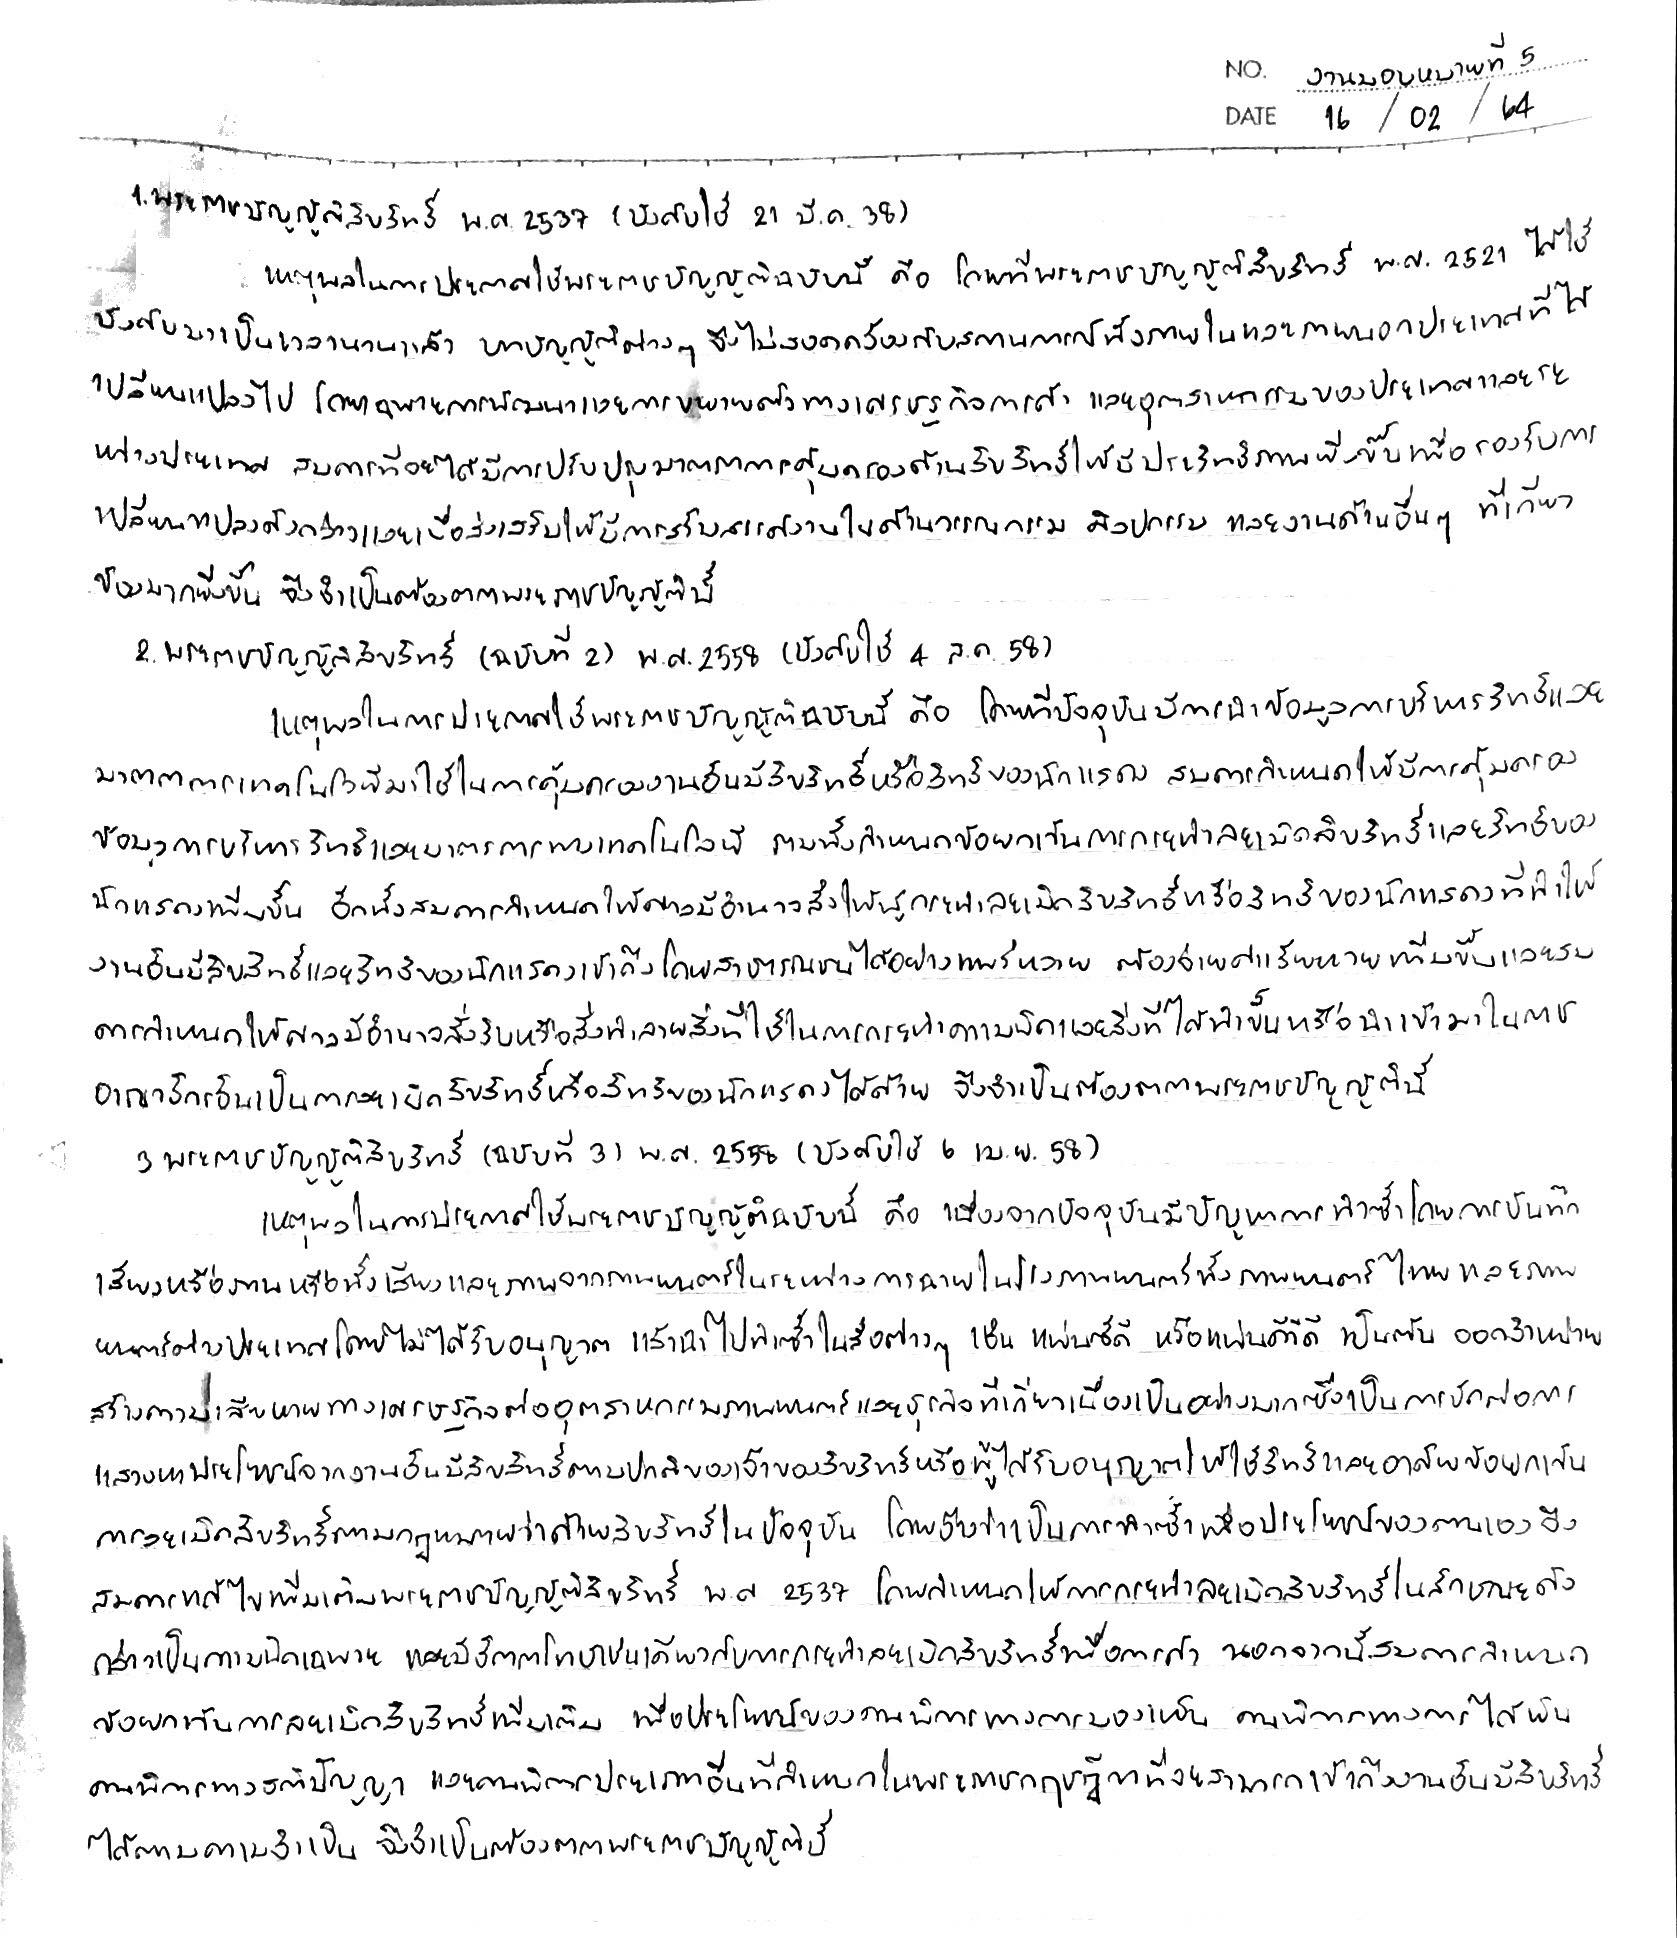 NO. งานมอบหมายที่ 5
DATE 16 / 02 / 64
1. พระราชบัญญัติลิขสิทธิ์ พ.ศ. 2537 (บังคับใช้ 21 มี.ค. 38)
เหตุผลในการประกาศใช้พระราชบัญญัติฉบับนี้ คือ โดยที่พระราชบัญญัติลิขสิทธิ์ พ.ศ. 2521 ได้ใช้
บังคับมาเป็นเวลานานแล้ว บทบัญญัติต่างๆ จึงไม่สอดคล้องกับสถานการณ์ทั้งภายในและภายนอกประเทศที่ได้
เปลี่ยนแปลงไป โดยเฉพาะการพัฒนาและการขยายตัวทางเศรษฐกิจการค้า และอุตสาหกรรมของประเทศและระ
หว่างประเทศ สมควรที่จะได้มีการปรับปรุงมาตรการคุ้มครองด้านลิขสิทธิ์ให้มีประสิทธิภาพยิ่งขึ้นเพื่อรองรับการ
เปลี่ยนแปลงดังกล่าวและเพื่อส่งเสริมให้มีการสร้างสรรค์งานในด้านวรรณกรรม ศิลปกรรม และงานด้านอื่นๆ ที่เกี่ยว
ข้องมากยิ่งขึ้น จึงจำเป็นต้องตราพระราชบัญญัตินี้
2. พระราชบัญญัติลิขสิทธิ์ (ฉบับที่ 2) พ.ศ. 2558 (บังคับใช้ 4 ส.ค. 58)
เหตุผลในการประกาศใช้พระราชบัญญัติฉบับนี้ คือ โดยที่ปัจจุบันมีการนำข้อมูลการบริหารสิทธิและ
มาตรการเทคโนโลยีมาใช้ในการคุ้มครองงานอันมีลิขสิทธิ์หรือสิทธิของนักแสดง สมควรกำหนดให้มีการคุ้มครอง
ข้อมูลการบริหารสิทธิและมาตรการทางเทคโนโลยี รวมทั้งกำหนดข้อยกเว้นการกระทำละเมิดลิขสิทธิ์และสิทธิของ
นักแสดงเพิ่มขึ้น อีกทั้งสมควรกำหนดให้ศาลมีอำนาจสั่งให้ผู้กระทำละเมิดลิขสิทธิ์หรือสิทธิของนักแสดงที่ทำให้
งานอันมีลิขสิทธิ์และสิทธิของนักแสดงเข้าถึงโดยสาธารณชนได้อย่างแพร่หลาย ต้องจ่ายค่าเสียหายเพิ่มขึ้นและสม
ควรกำหนดให้ศาลมีอำนาจสั่งริบหรือสั่งทำลายสิ่งที่ใช้ในการกระทำความผิดและสิ่งที่ได้ทำขึ้นหรือนำเข้ามาในราช
อาณาจักรอันเป็นการละเมิดลิขสิทธิ์หรือสิทธิของนักแสดงได้ด้วย จึงจำเป็นต้องตราพระราชบัญญัตินี้
3 พระราชบัญญัติลิขสิทธิ์ (ฉบับที่ 3) พ.ศ. 2558 (บังคับใช้ 6 เม.ย. 58)
เหตุผลในการประกาศใช้พระราชบัญญัติฉบับนี้ คือ เนื่องจากปัจจุบันมีปัญหาการทำซ้ำโดยการบันทึก
เสียงหรือภาพหรือทั้งเสียงและภาพจากภาพยนตร์ในระหว่างการฉายในโรงภาพยนตร์ทั้งภาพยนตร์ไทยและภาพ
ยนตร์ต่างประเทศโดยไม่ได้รับอนุญาต แล้วนำไปทำซ้ำในสื่อต่างๆ เช่น แผ่นซีดี หรือแผ่นดีวีดี เป็นต้น ออกจำหน่าย
สร้างความเสียหายทางเศรษฐกิจต่ออุตสาหกรรมภาพยนตร์และธุรกิจที่เกี่ยวเนื่องเป็นอย่างมากซึ่งเป็นการขัดต่อการ
แสวงหาประโยชน์จากงานอันมีลิขสิทธิ์ตามปกติของเจ้าของลิขสิทธิ์หรือผู้ได้รับอนุญาตให้ใช้สิทธิและอาศัยข้อยกเว้น
การละเมิดลิขสิทธิ์ตามกฎหมายว่าด้วยลิขสิทธิ์ในปัจจุบัน โดยอ้างว่าเป็นการทำซ้ำเพื่อประโยชน์ของตนเอง จึง
สมควรแก้ไขเพิ่มเติมพระราชบัญญัติลิขสิทธิ์ พ.ศ 2537 โดยกำหนดให้การกระทำละเมิดลิขสิทธิ์ในลักษณะดัง
กล่าวเป็นความผิดเฉพาะ และมีอัตราโทษเช่นเดียวกับการกระทำละเมิดลิขสิทธิ์เพื่อการค้า นอกจากนี้สมควรกำหนด
ข้อยกเว้นการละเมิดลิขสิทธิ์เพิ่มเติม เพื่อประโยชน์ของคนพิการทางการมองเห็น คนพิการทางการได้ยิน
คนพิการทางสติปัญญา และคนพิการประเภทอื่นที่กำหนดในพระราชกฤษฎีกาที่จะสามารถเข้าถึงงานอันมีลิขสิทธิ์
ได้ตามความจำเป็น จึงจำเป็นต้องตราพระราชบัญญัตินี้